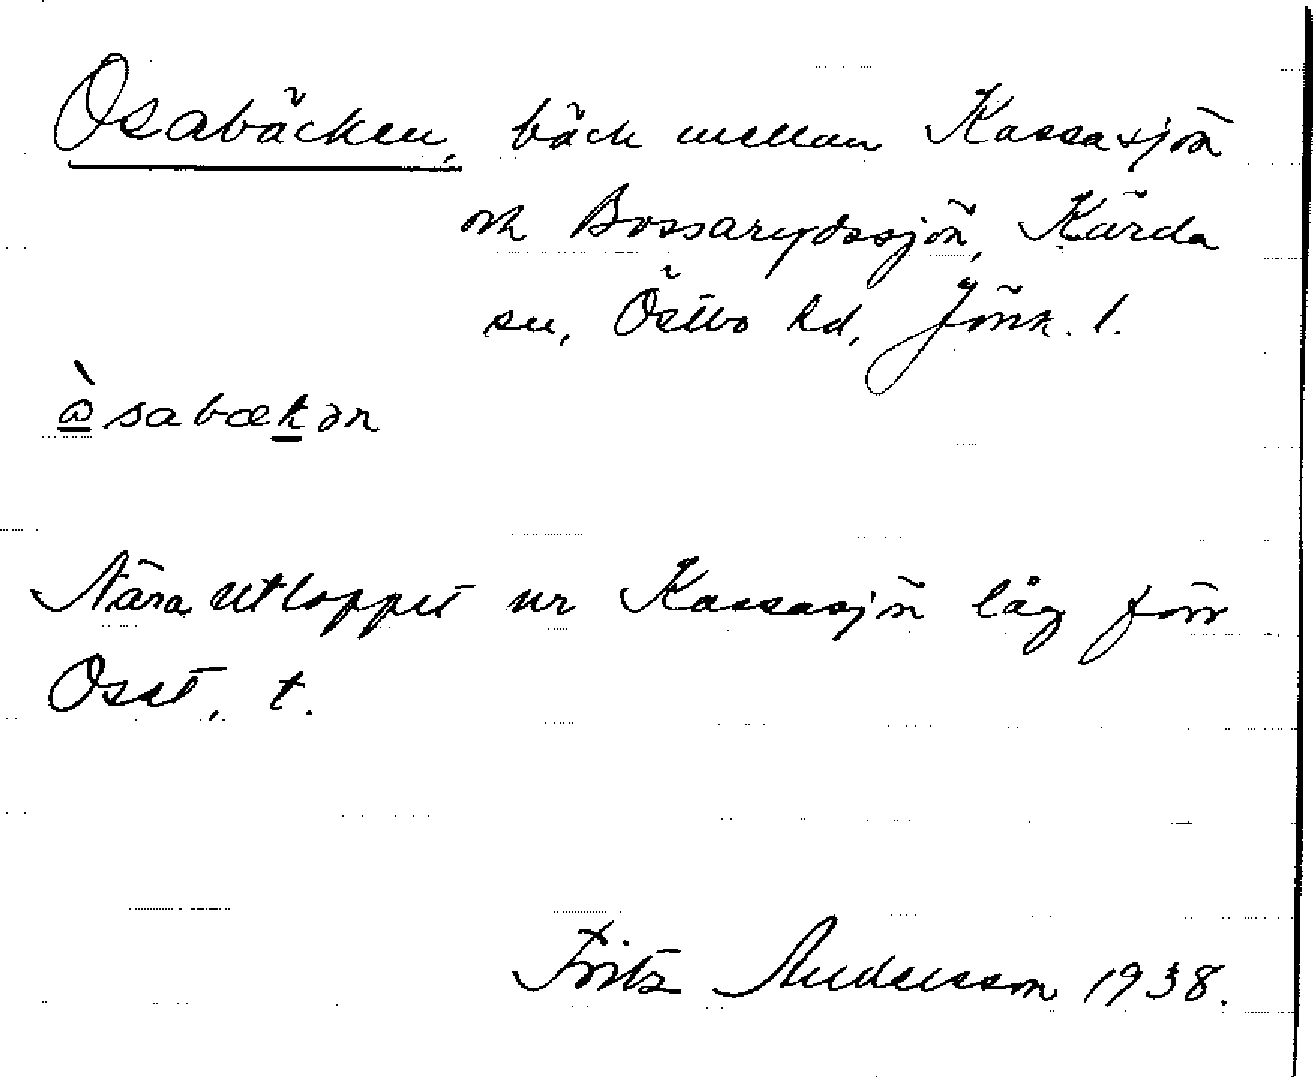 Osabäcken, bäck mellan Kassasjön
och Bossarydssjön, Kärda
sn, Östbo hd, Jönk. l.
ὼsabækən
Nära utloppet ur Kassasjön låg förr
Oset, t.
Fritz Andersson 1938.